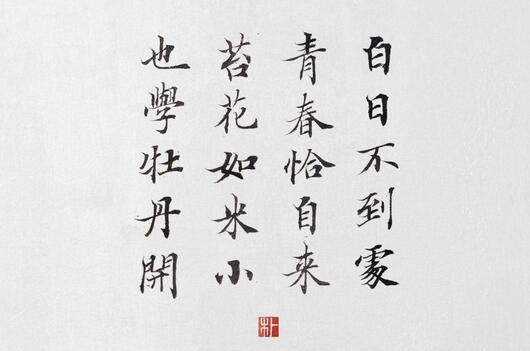 白日不到處
青春恰自來
苔花如米小
也學牡丹開